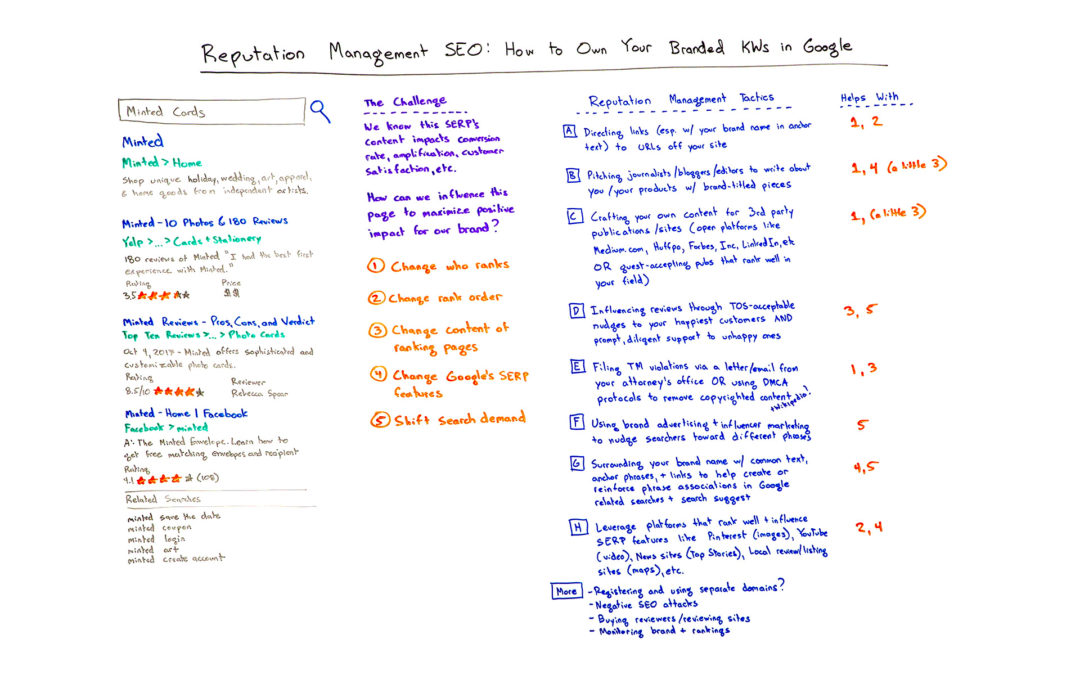 Reputation Management SEO: How to Own Your Branded KWs in Google
Minted Cards
Minted
Minted > Home
Shop unique holiday, wedding, art, apparel,
& home goods from independent artists.
Minted - 10 Photos & 180 Reviews
Yelp > ... > Cards + Stationery
180 reviews of Minted "I had the best first
experience with Minted."
Rating Price
3.5 ★★★★★ $$
Minted Reviews - Pros, Cons, and Verdict
Top Ten Reviews > ... > Photo Cards
Oct 9, 2017 - Minted offers sophisticated and
customizable photo cards.
Rating Reviewer
8.5/10 ★★★★★ Rebecca Spear
Minted - Home | Facebook
Facebook > minted
A: The Minted Envelope. Learn how to
get free matching envelopes and recipient
Rating
4.1 ★★★★☆ (108)
Related Searches
minted save the date
minted coupon
minted login
minted art
minted create account
The Challenge
We know this SERP's
content impacts conversion
rate, amplification, customer
satisfaction, etc.
How can we influence this
page to maximize positive
impact for our brand?
1 Change who ranks
2 Change rank order
3 Change content of
ranking pages
4 Change Google's SERP
features
5 Shift search demand
Reputation Management Tactics Helps With
A Directing links (esp. w/ your brand name in anchor 1, 2
text) to URLs off your site
B Pitching journalists/bloggers/editors to write about 1, 4 (a little 3)
you/your products w/ brand-titled pieces
C Crafting your own content for 3rd party 1, (a little 3)
publications/sites (open platforms like
Medium.com, HuffPo, Forbes, Inc, LinkedIn, etc
OR guest-accepting pubs that rank well in
your field)
D Influencing reviews through TOS-acceptable 3, 5
nudges to your happiest customers AND
prompt, diligent support to unhappy ones
E Filing TM violations via a letter/email from 1, 3
your attorney's office OR using DMCA
protocols to remove copyrighted content
+ Wikipedia!
F Using brand advertising + influencer marketing 5
to nudge searchers toward different phrases
G Surrounding your brand name w/ common text, 4, 5
anchor phrases, + links to help create or
reinforce phrase associations in Google
related searches + search suggest
H Leverage platforms that rank well + influence 2, 4
SERP features like Pinterest (images), YouTube
(video), News sites (Top Stories), Local review/listing
sites (maps), etc.
More - Registering and using separate domains?
- Negative SEO attacks
- Buying reviewers/reviewing sites
- Monitoring brand + rankings